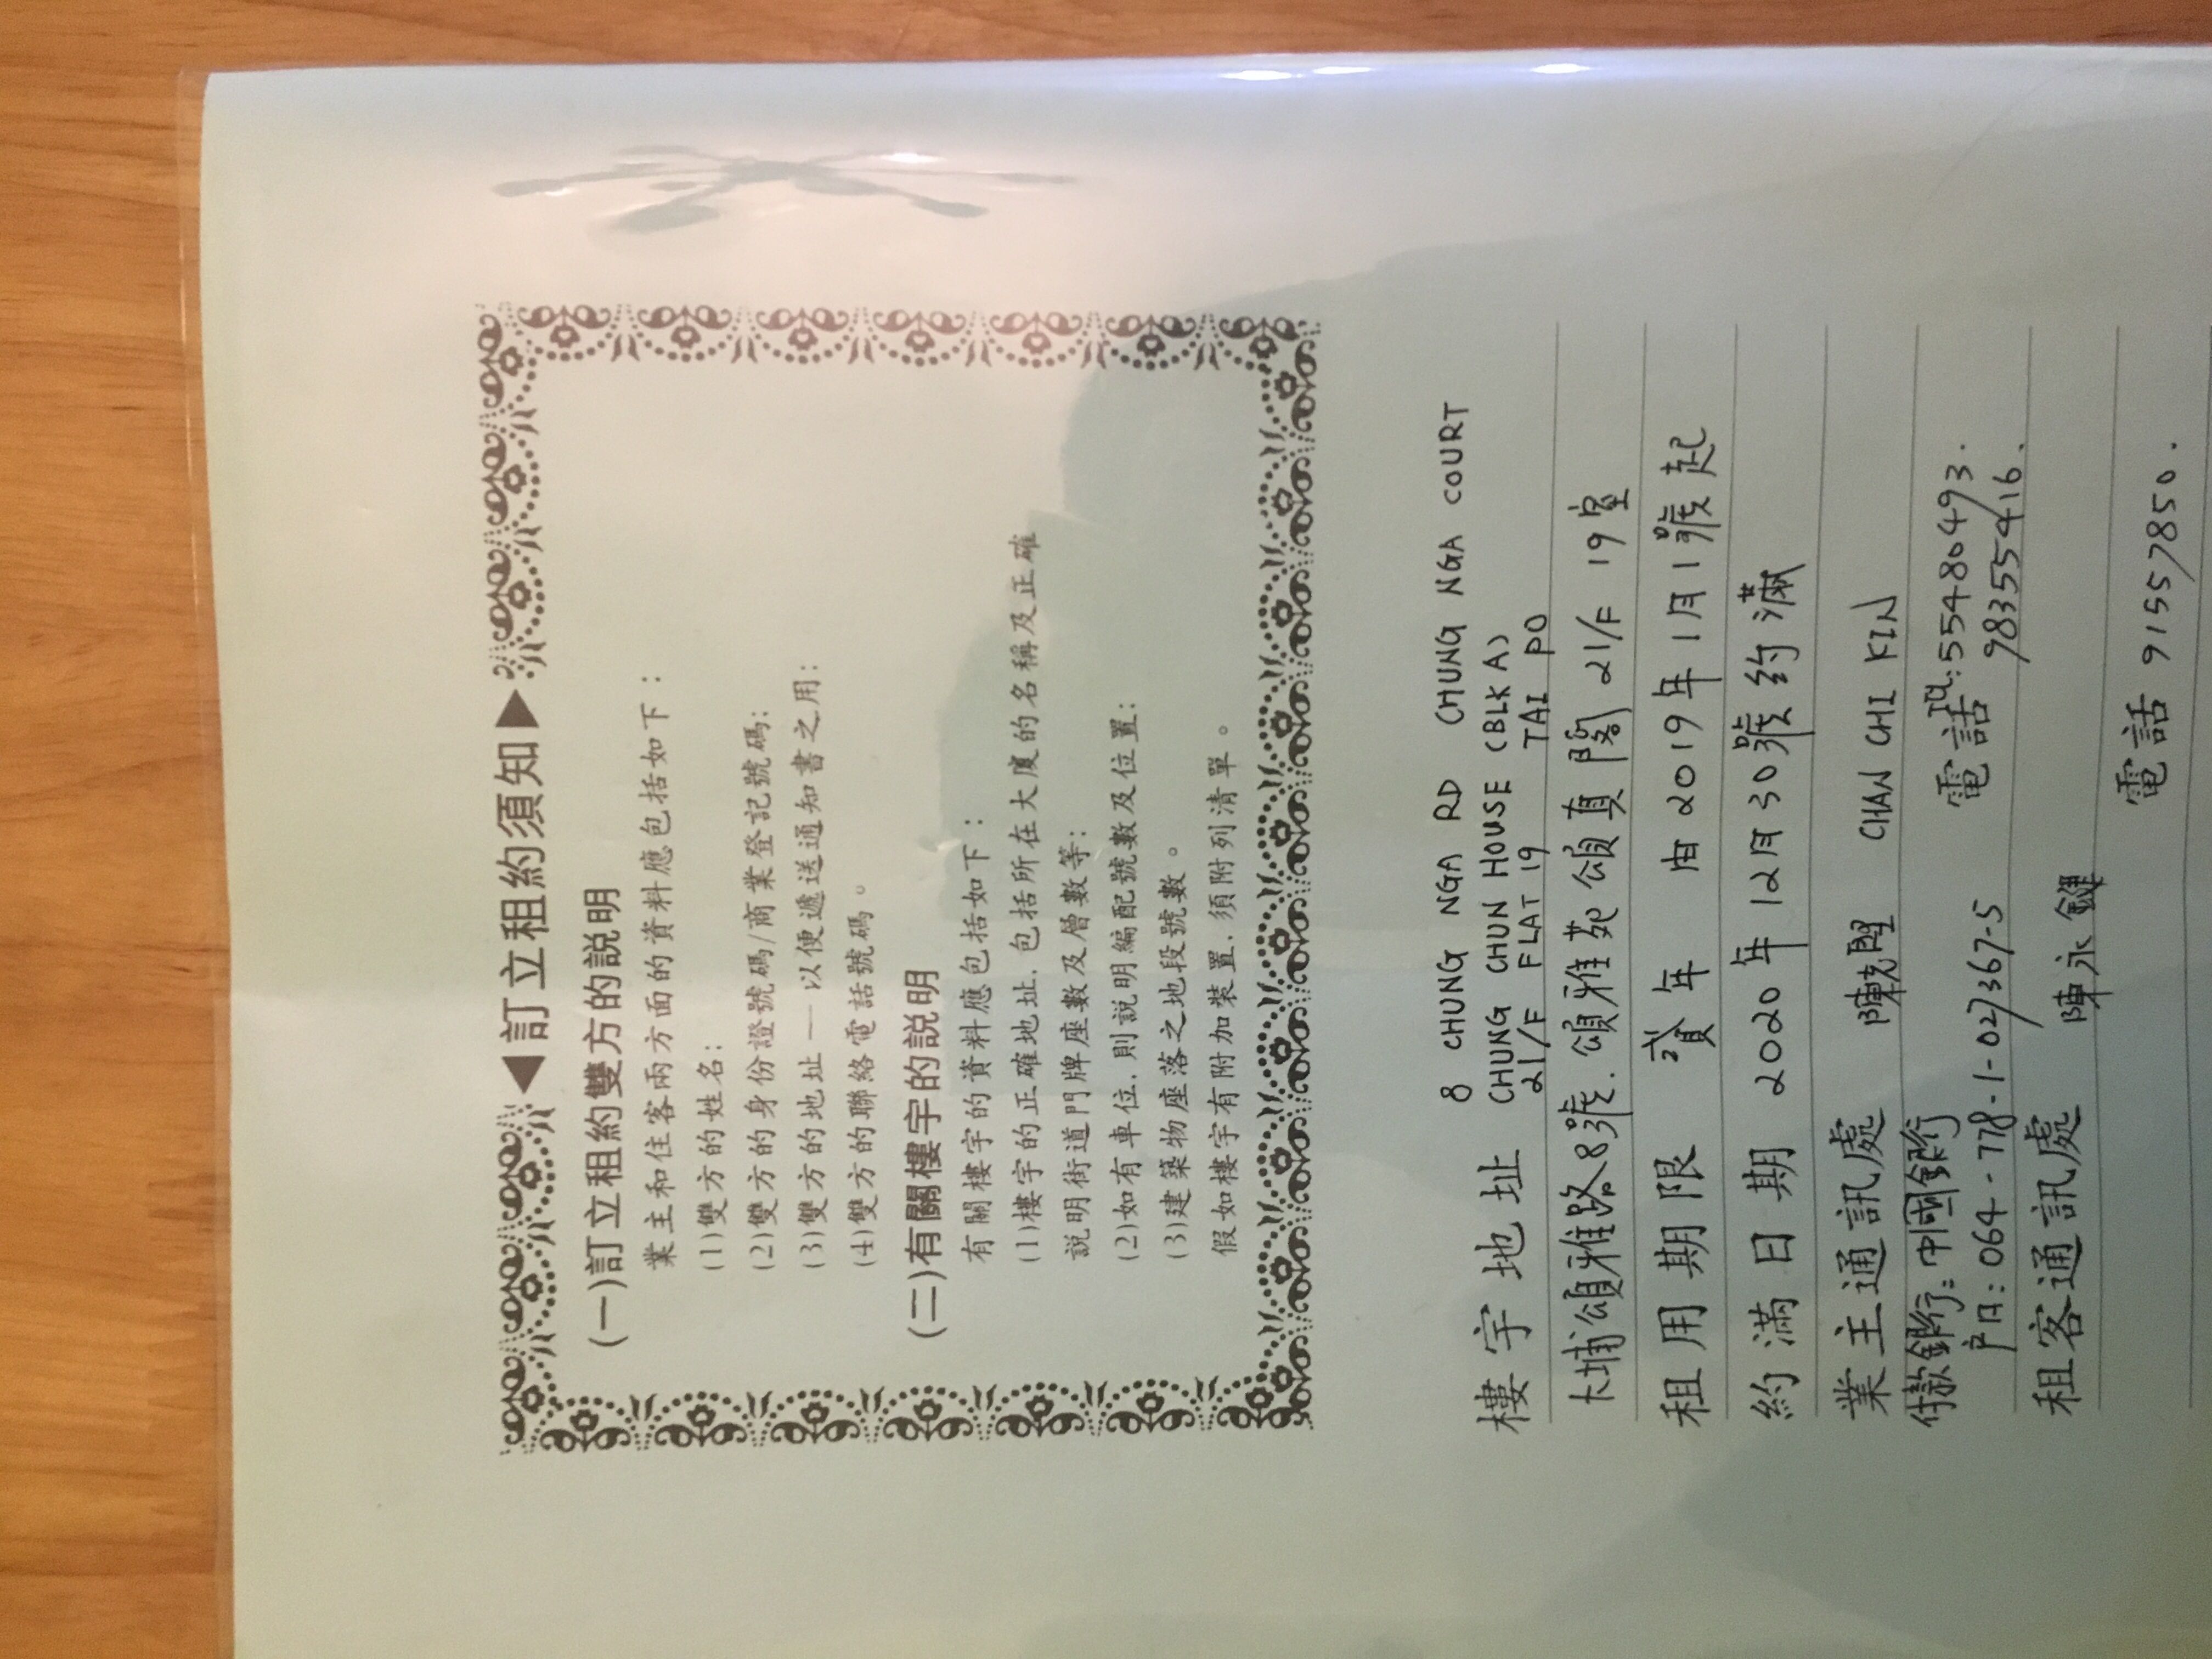 ◀訂立租約須知▶
(一)訂立租約雙方的説明
業主和住客兩方面的資料應包括如下：
(1)雙方的姓名：
(2)雙方的身份證號碼/商業登記號碼：
(3)雙方的地址──以便遞送通知書之用：
(4)雙方的聯絡電話號碼。
(二)有關樓宇的説明
有關樓宇的資料應包括如下：
(1)樓宇的正確地址，包括所在大廈的名稱及正確
説明街道門牌座數及層數等：
(2)如有車位，則説明編配號數及位置：
(3)建築物座落之地段號數。
假如樓宇有附加裝置，須附列清單。
8 CHUNG NGA RD CHUNG NGA COURT
樓宇地址 CHUNG CHUN HOUSE (BLK A)
21/F FLAT 19 TAI PO
大埔頌雅路8號．頌雅苑頌真閣 21/F 19室
租用期限 貳年 由2019年1月1號起
約滿日期 2020年12月30號約滿
業主通訊處 陳 CHAN CHI KIN
付款銀行：中國銀行 電話 TEL：55480493．
戶口：064-778-1-027367-5 98355416．
租客通訊處 陳永鍵
電話 91557850．